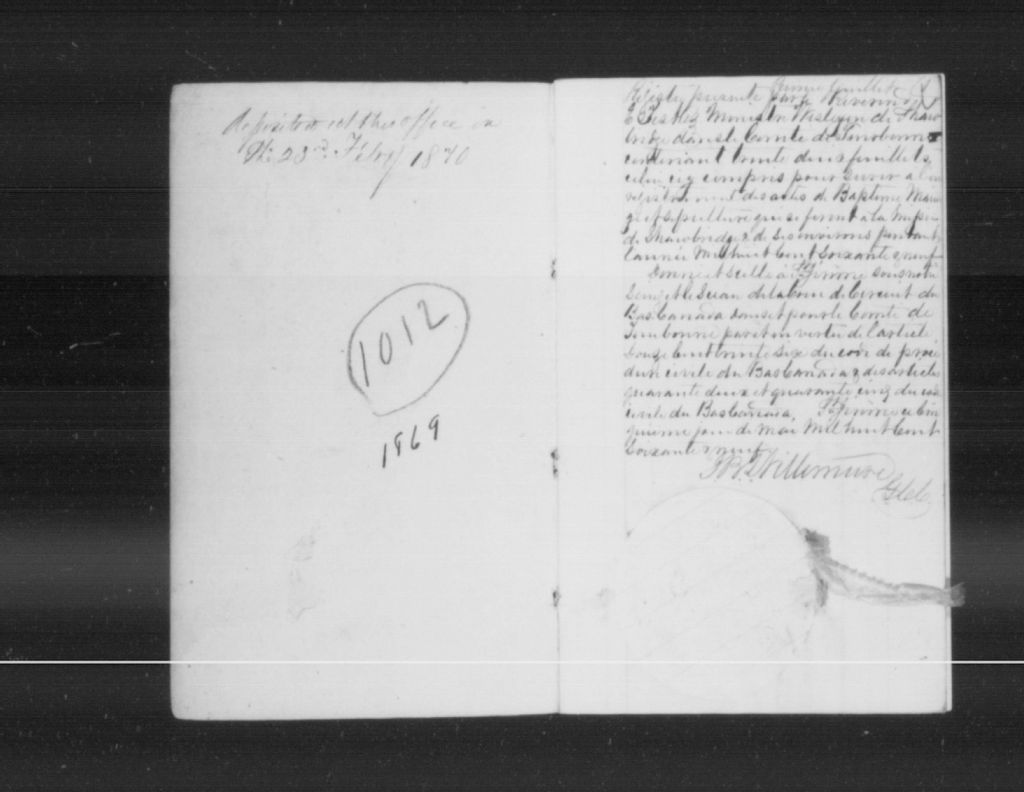 deposited at this office on
the 23rd Feby 1870
1012
1869
Premier feuillet
Registre présenté par le Révérend
Ministre Wesleyen de Shaw
bridge dans le Comté de Terrebonne
contenant trente deux feuillets
celui cy compris pour servir à l'en
registrement des actes de Baptème Maria
ge et sépulture qui se feront à la Mission
de Shawbridge & de ses environs pendant
l'année Mil huit Cent Soixante & neuf
Donné et Scellé à St Jérôme sous notre
Seing et le Sceau de la Cour de Circuit du
Bas Canada dans et pour le Comté de
Terrebonne par et en vertu de l'article
Douze Cent trente six du code de procé
dure civile du Bas Canada & des articles
quarante deux et quarante cinq du code
civil du Bas Canada, St Jérôme ce cin
quième jour de Mai Mil huit Cent
Soixante & neuf
Villemure